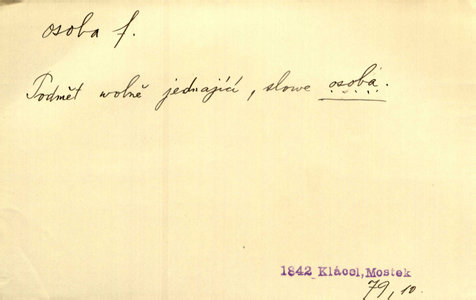 osoba f.
Podmět wolně jednající, slowe osobá.
1842 Klácel, Mostek
79, 10.